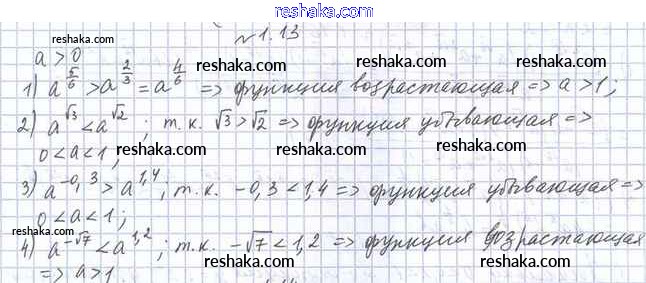 reshaka.com
№1.13
reshaka.com reshaka.com
a > 0
1) a^{5/6} > a^{2/3} = a^{4/6} => функция возрастающая => a > 1;
reshaka.com reshaka.com reshaka.com
2) a^{√3} < a^{√2}; т.к. √3 > √2 => функция убывающая =>
0 < a < 1;
reshaka.com reshaka.com reshaka.com
3) a^{-0,3} > a^{1,4}; т.к. -0,3 < 1,4 => функция убывающая =>
0 < a < 1;
reshaka.com reshaka.com reshaka.com
4) a^{-√7} < a^{1,2}; т.к. -√7 < 1,2 => функция возрастающая
=> a > 1
reshaka.com reshaka.com reshaka.com